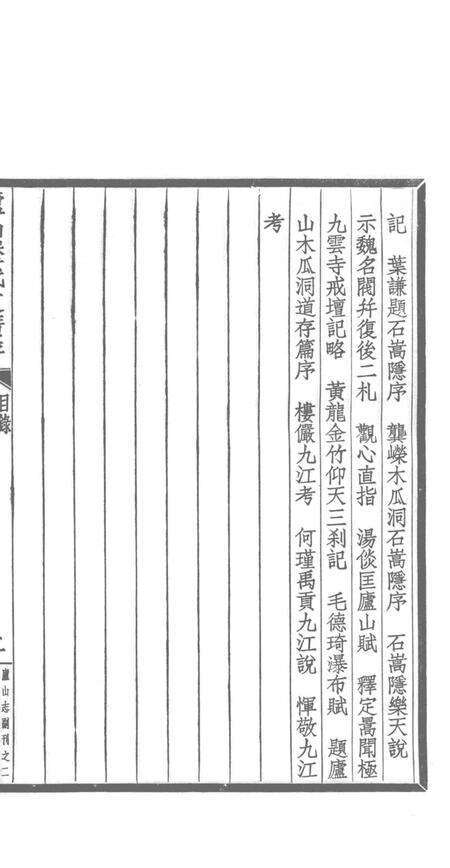 記　葉謙題石嵩隱序　龔嶸木瓜洞石嵩隱序　石嵩隱樂天說
示魏名閥幷復後二札　觀心直指　湯倓匡廬山賦　釋定暠聞極
九雲寺戒壇記略　黃龍金竹仰天三刹記　毛德琦瀑布賦　題廬
山木瓜洞道存篇序　樓儼九江考　何瑾禹貢九江說　惲敬九江
考
目錄
廬山志副刊之二